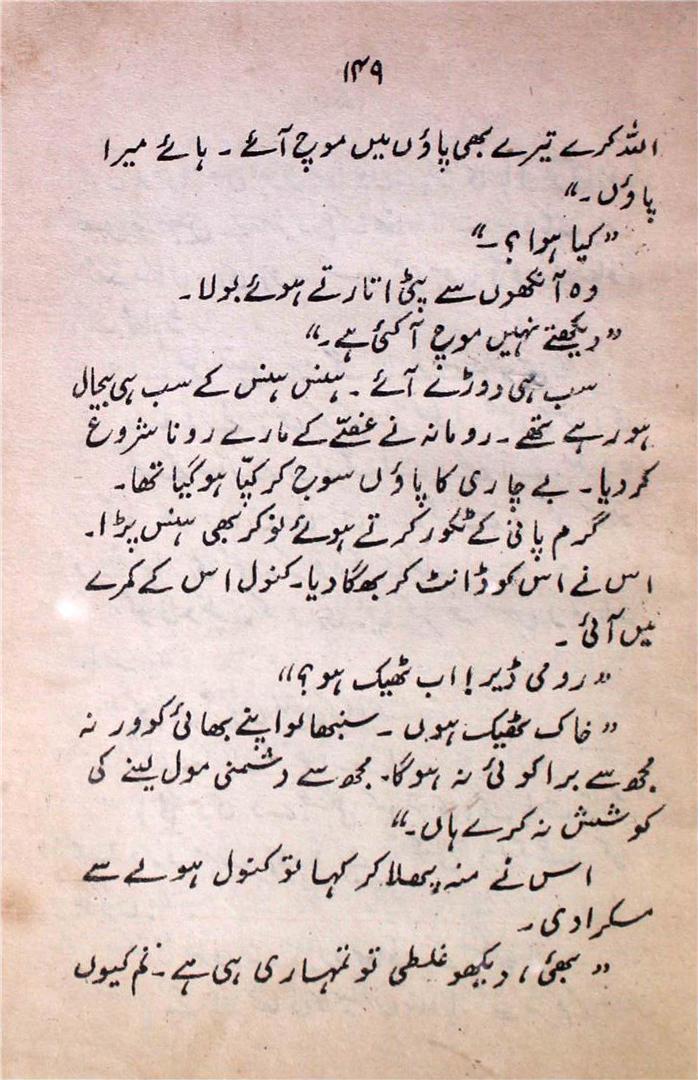 ۱۴۹
اللہ کرے تیرے بھی پاؤں میں موچ آئے ۔ ہائے میرا
پاؤں ۔“
”کیا ہوا؟ ۔“
وہ آنکھوں سے پٹی اتارتے ہوئے بولا ۔
”دیکھتے نہیں موچ آ گئی ہے ۔“
سب ہی دوڑے آئے ۔ ہنس ہنس کے سب ہی بیحال
ہو رہے تھے ۔ رومانہ نے غصّے کے مارے رونا شروع
کر دیا ۔ بے چاری کا پاؤں سوج کر کپّا ہو گیا تھا ۔
گرم پانی کے ٹکور کرتے ہوئے نوکر بھی ہنس پڑا ۔
اس نے اس کو ڈانٹ کر بھگا دیا ۔ کنول اس کے کمرے
میں آئی ۔
”رومی ڈیر! اب ٹھیک ہو؟“
”خاک ٹھیک ہوں ۔ سنبھالو اپنے بھائی کو ورنہ
مجھ سے برا کوئی نہ ہوگا ۔ مجھ سے دشمنی مول لینے کی
کوشش نہ کرے ہاں ۔“
اس نے منہ پھلا کر کہا تو کنول ہولے سے
مسکرا دی ۔
”بھئی، دیکھو غلطی تو تمہاری ہی ہے ۔ تم کیوں